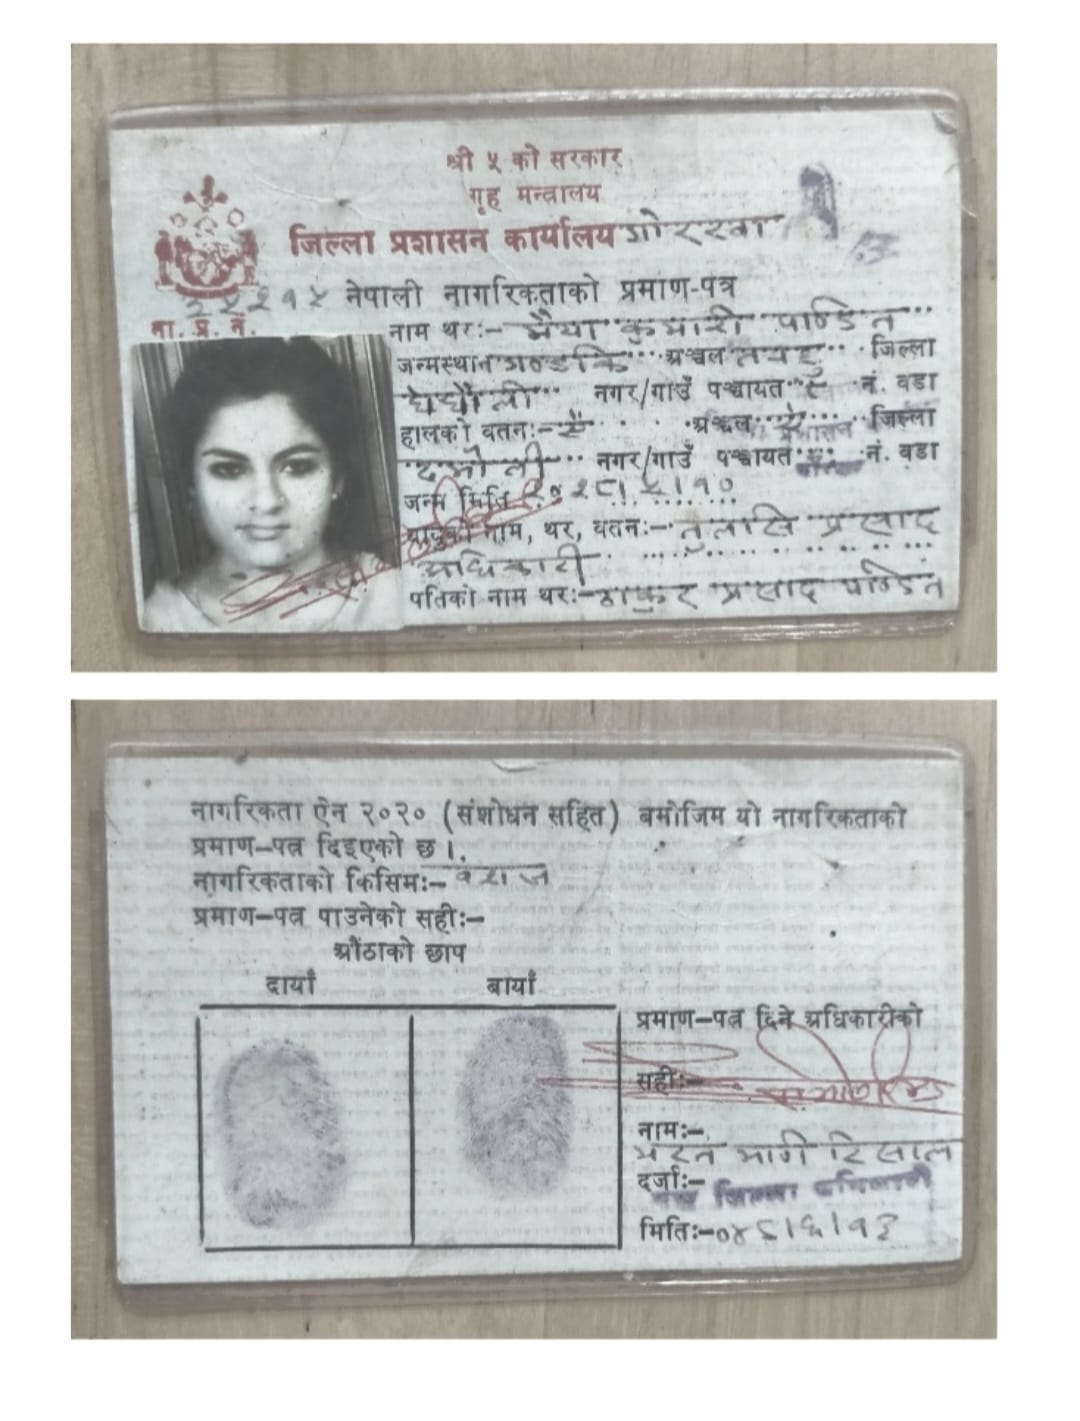 श्री ५ को सरकार
गृह मन्त्रालय
जिल्ला प्रशासन कार्यालय गोरखा
नेपाली नागरिकताको प्रमाण-पत्र
ना. प्र. नं.
नाम थरः- मैया कुमारी पाण्डित
जन्मस्थान गण्डकि अञ्चल तनहु जिल्ला
घेघौली नगर/गाउँ पञ्चायत नं. वडा
हालको वतनः- ऐ अञ्चल ऐ जिल्ला
नगर/गाउँ पञ्चायत नं. वडा
जन्म मिति
बाबुको नाम, थर, वतनः- तुलासि प्रसाद
अधिकारी
पतिको नाम थरः- ठाकुर प्रसाद पाण्डित
नागरिकता ऐन २०२० (संशोधन सहित) बमोजिम यो नागरिकताको
प्रमाण–पत्र दिइएको छ ।
नागरिकताको किसिमः– वंशज
प्रमाण–पत्र पाउनेको सहीः–
औंठाको छाप
दायाँ बायाँ
प्रमाण–पत्र दिने अधिकारीको
सहीः–
नामः–
भरत मणि रिसाल
दर्जाः–
मितिः–